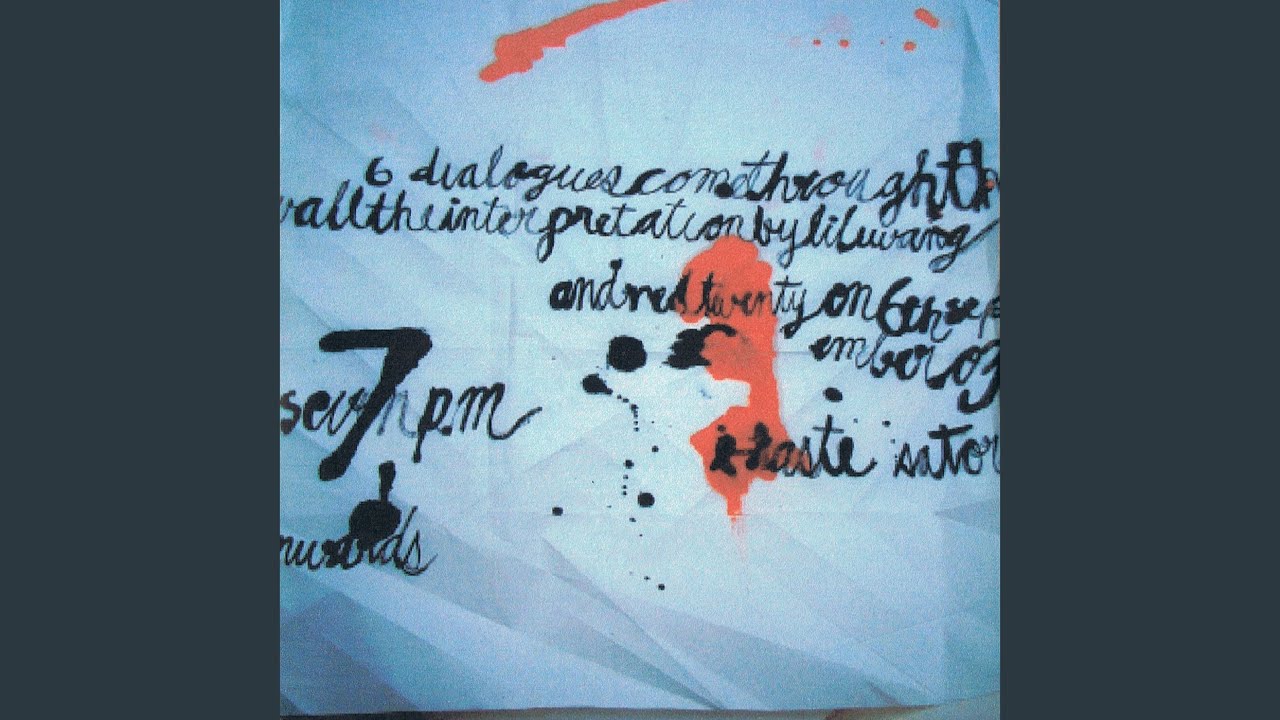 6 dialogues come through th
wall the interpretation by liluwang
and red twenty on 6th sep
ember 03
seven p.m
7
i-haste sator
nwards